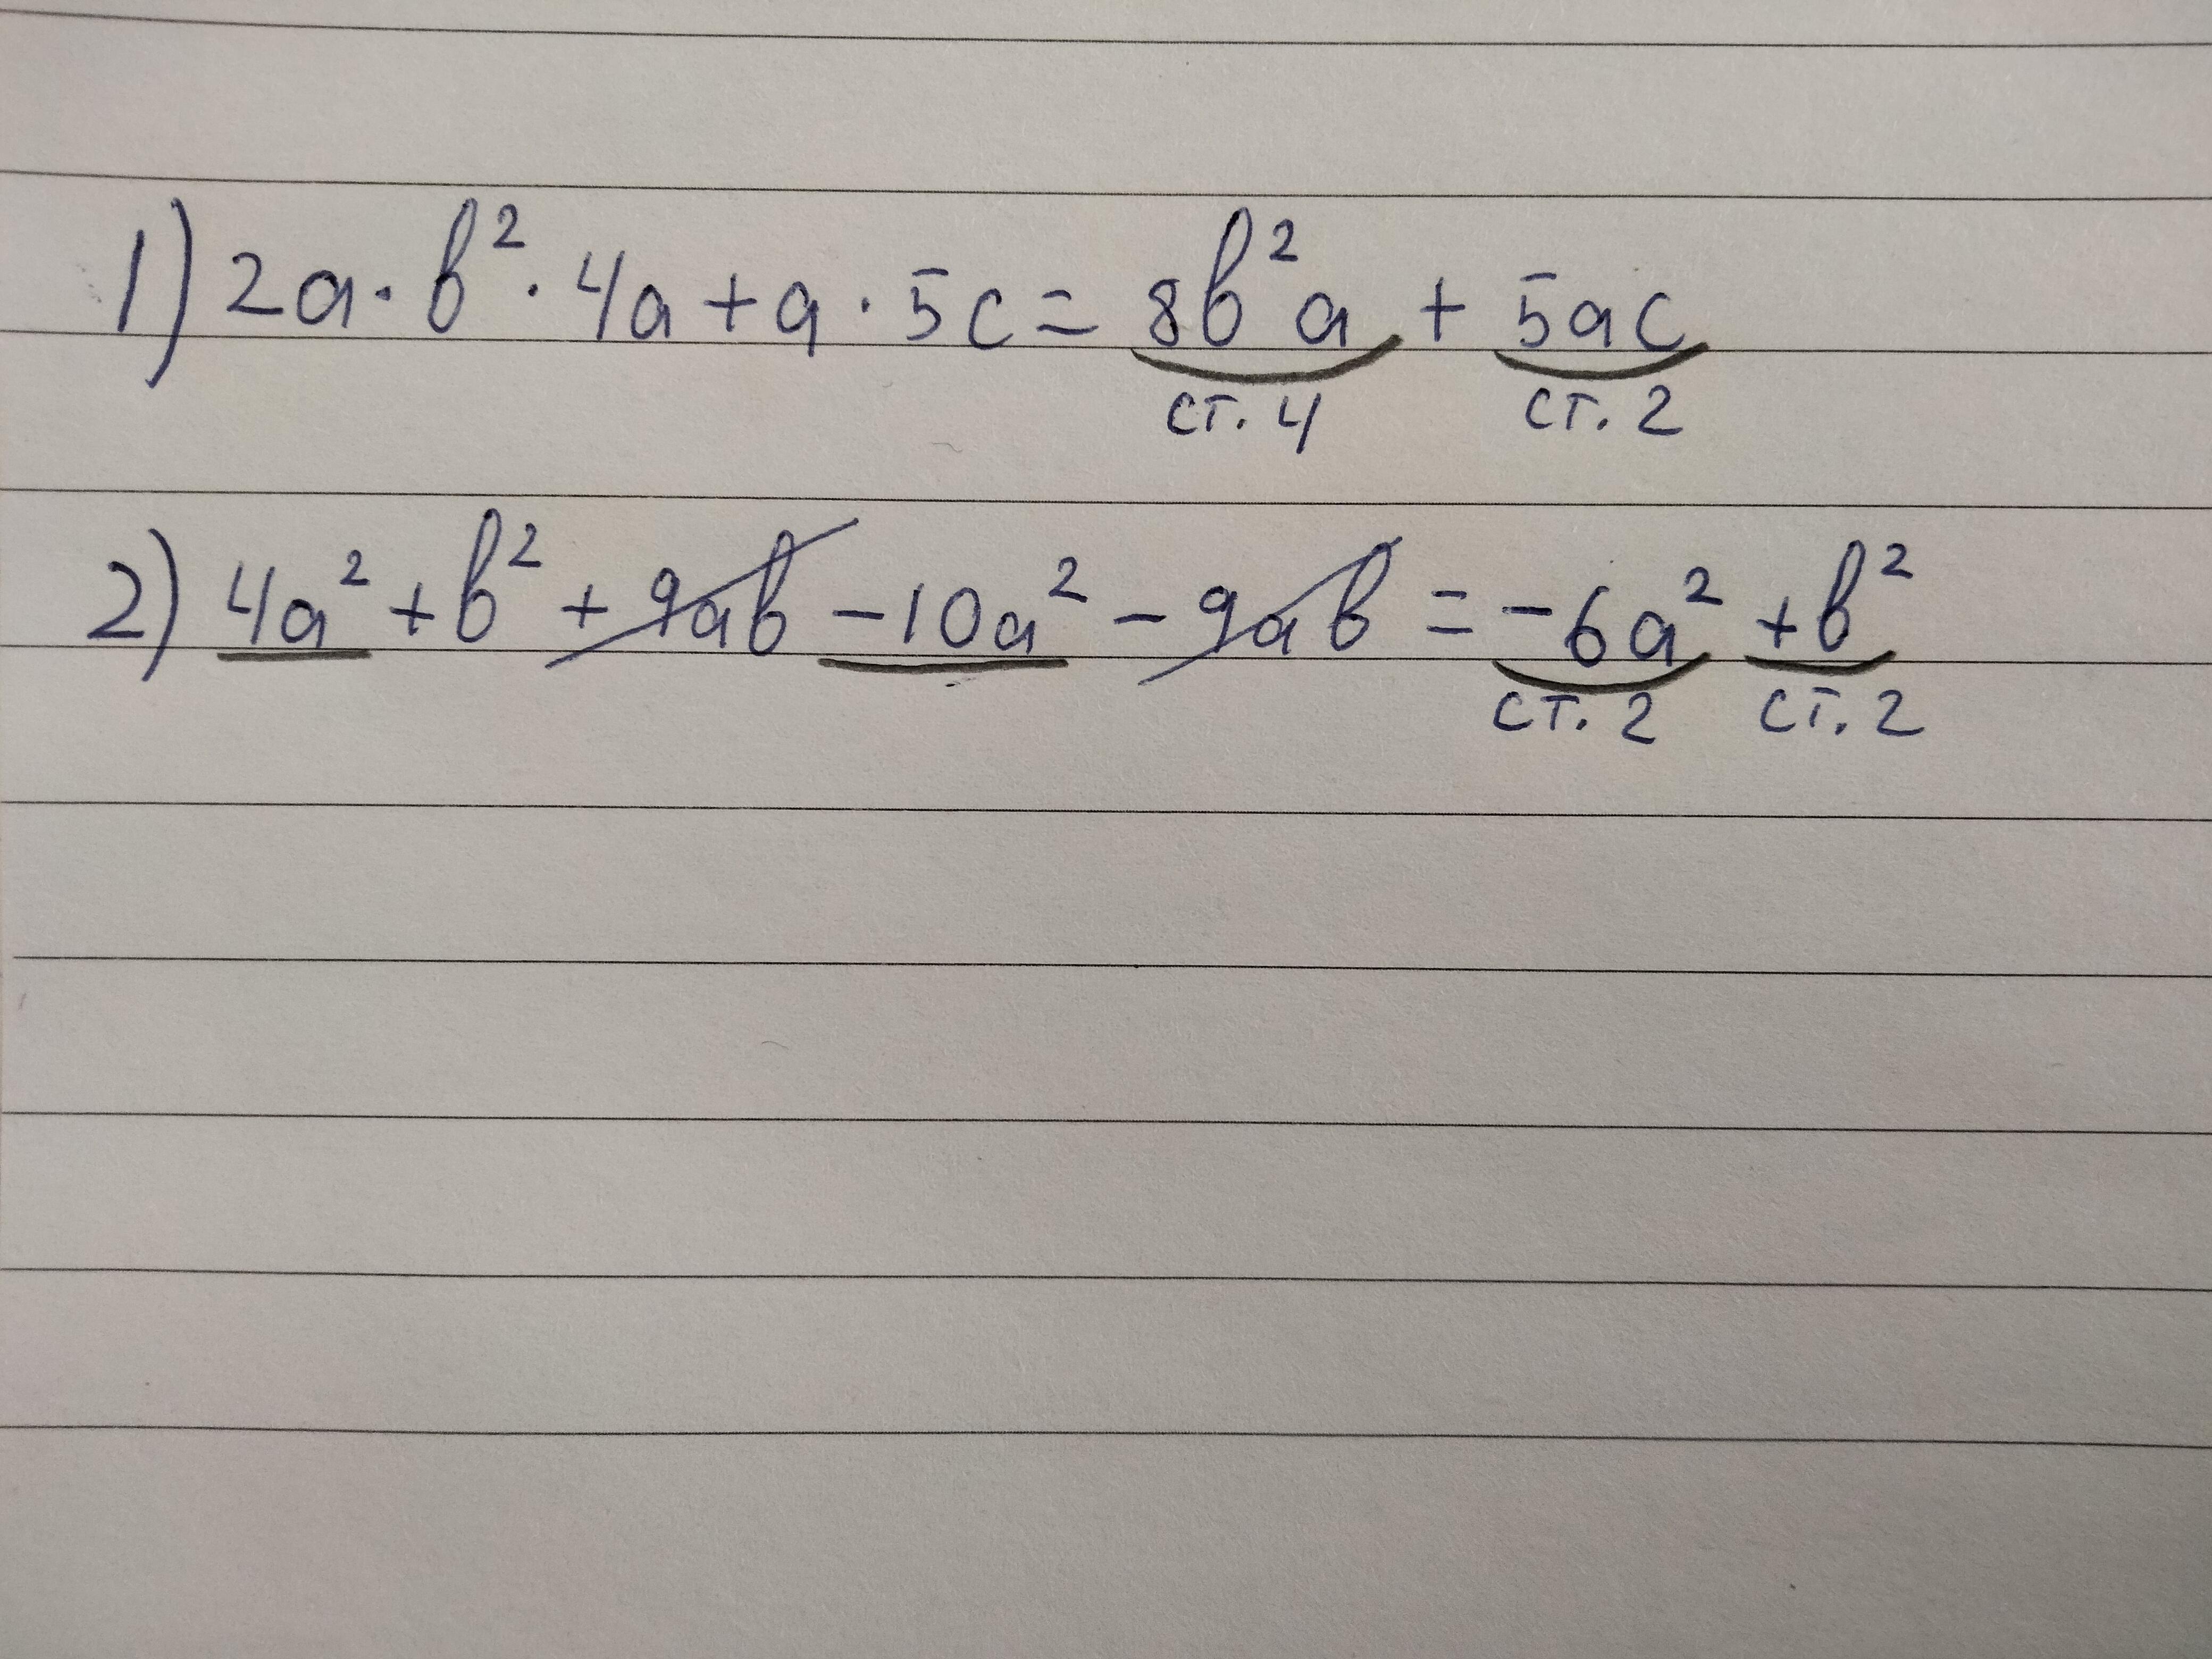 1) 2a · b² · 4a + a · 5c = 8b²a + 5ac
ст. 4 ст. 2
2) 4a² + b² + 9ab - 10a² - 9ab = -6a² + b²
ст. 2 ст. 2